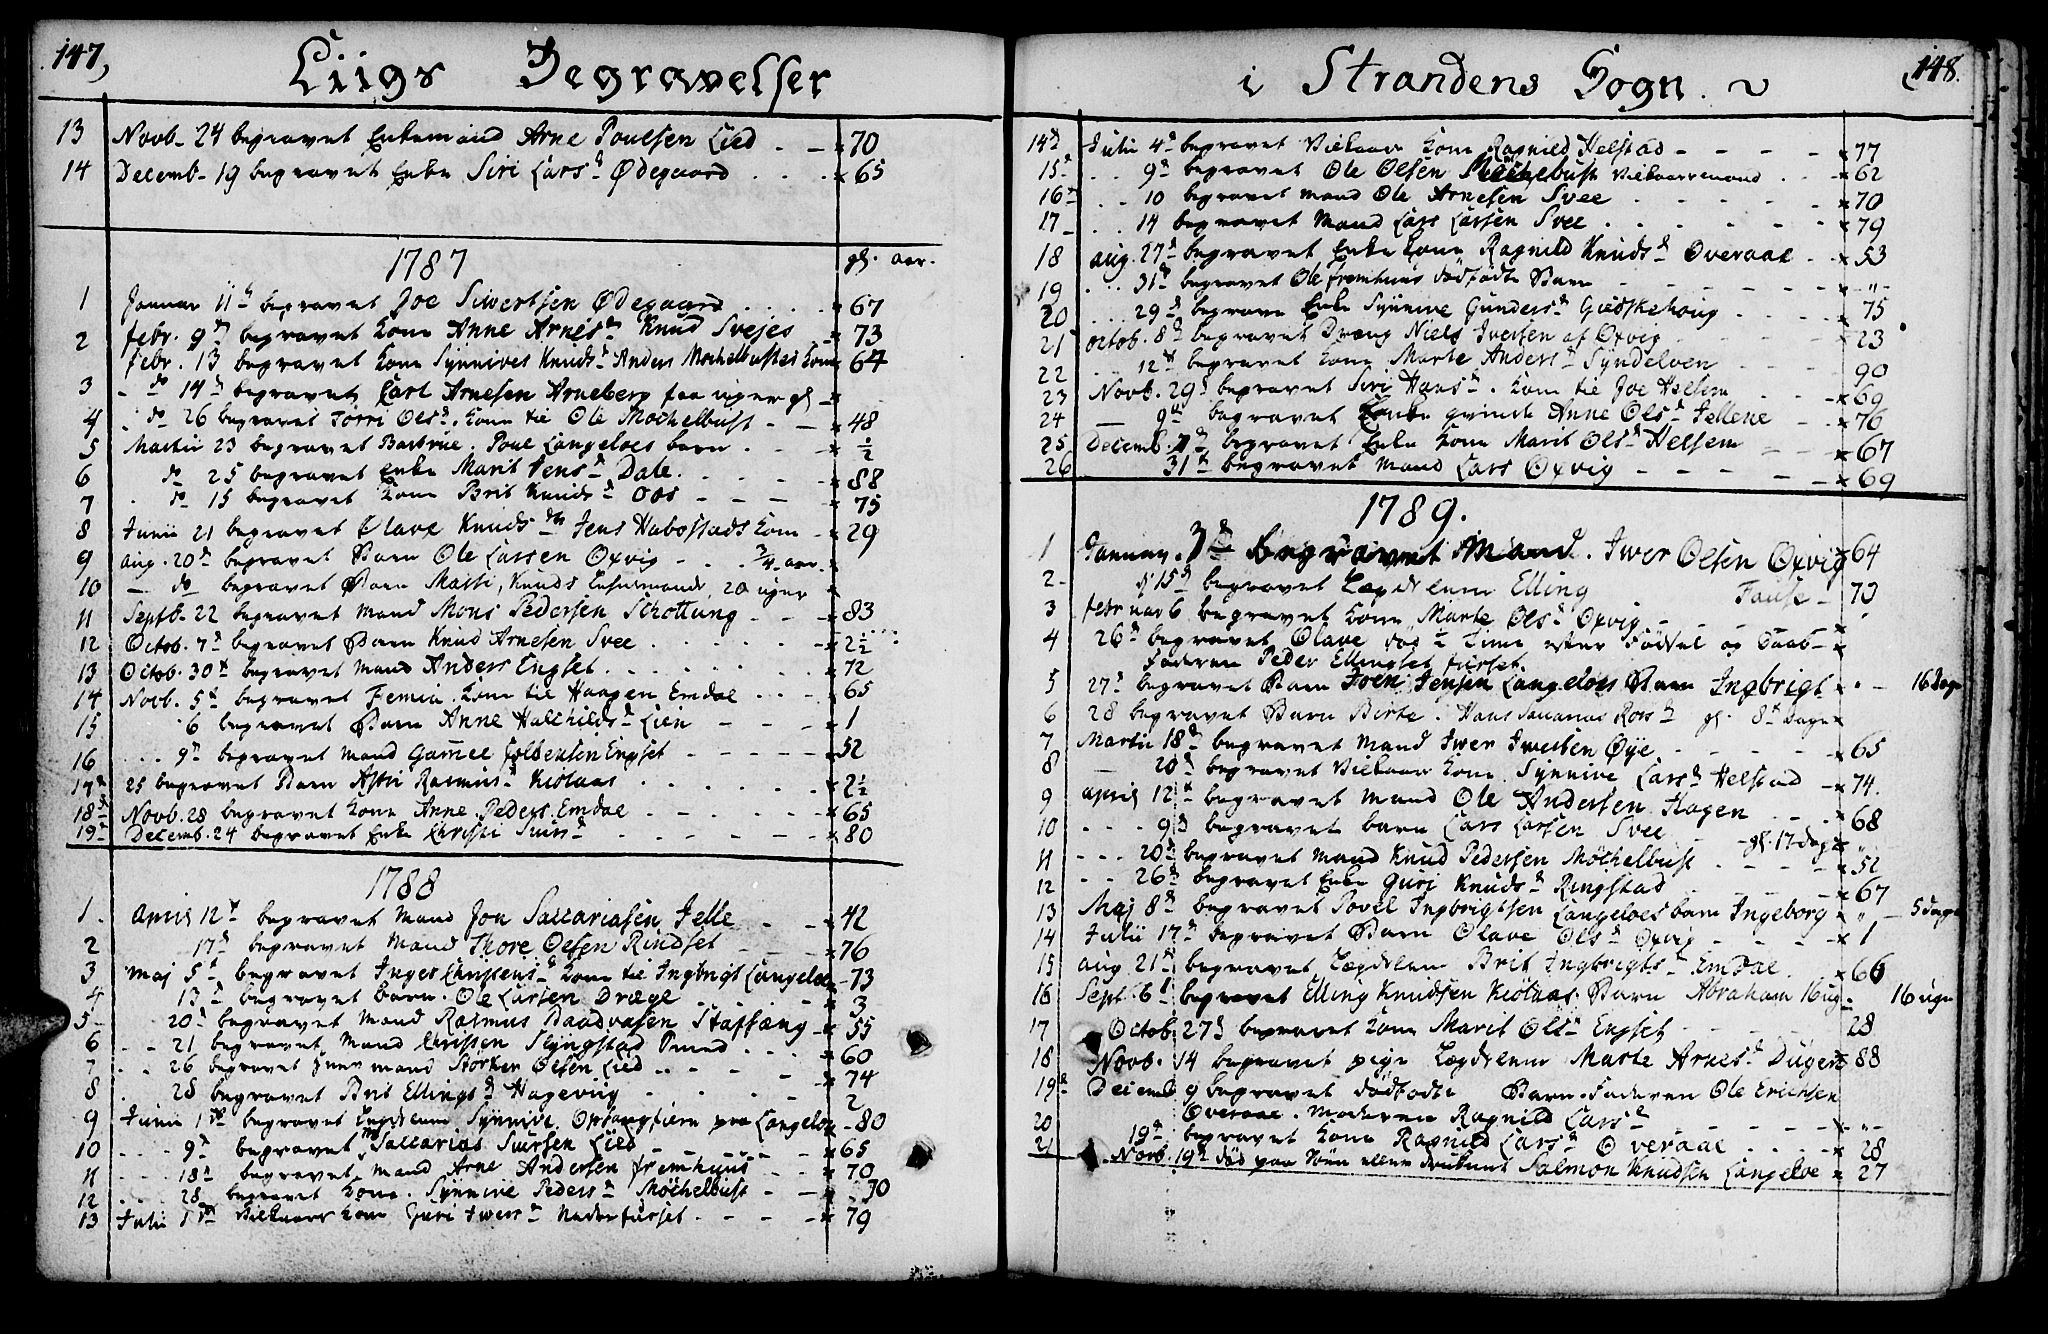 147,
Liigs Begravelser
13 Novb. 24 begravet Enkemand Arne Poulsen Lied - 70
14 Decemb. 19 begravet Enke Siri Lars d. Ødegaard - 65
1787 gl. aar.
1 Januar 11 d. begravet Joe Siwertsen Ødegaard 67
2 febr. 9 d. begravet Kone Anne Arnesd. Knud Svejes 73
febr. 13 begravet Kone Synnives Knudsd. Anders Mochelbustes Kone 64
3 - do 14 d. begravet Carl Arnesen Arneberg faa uger gl.
4 do 26 begravet Torri Olsd. Kone til Ole Mochelbust - 48
5 Martii 23 begravet Poul Langeloes barn ½
6 do 25 begravet Enke Marit Jensd. Dale 88
7 do 15 begravet Kone Brit Knudsd. Oos 75
8 Junii 21 begravet Olave Knudsd. Jens Habostads Kone - 29
9 aug. 20 d. begravet Barn Ole Larsen Oxvig - ¾ aar.
10 - do begravet Barn Marti, Knuds 20 uger
11 Septb. 22 begravet Mand Mons Pedersen Schottung 83
12 Octob. 7 d. begravet Barn Knud Arnesen Svee 2½
13 Octob. 30 d. begravet Mand Anders Engset 72
14 Novb. 5 d. begravet Femia Kone til Haagen Emdal 65
15 6 begravet Barn Anne Halchildsd. Lien 1
16 9 d. begravet Mand Gamel Engset 52
17 25 begravet Barn Astri Rasmusd. Kiolaas 2½
18 Novb. 28 begravet Kone Anne Peders Emdal 65
19 Decemb. 24 begravet Enke Christi 80
1788
1. April 12 d. begravet Mand Jon Saccariasen Jelle 42
2 17 d. begravet Mand Thore Olsen Rindset 76
3 Maj 5 d. begravet Inger Christensd. Kone til Ingbrigt Langeloe 73
4 13 d. begravet barn Ole Larsen Dræge 3
5 20 d. begravet Mand Rasmus Staffæng 55
6 21 begravet Mand Christen Slyngstad 60
7 26 begravet Mand Storker Olsen Lied 74
8 28 begravet Brit Ellingsd. Hagevig 2
9 Junii 1 begravet Legdslem Synnive paa Langeloe 80
10 9 d. begravet Saccarias Lied 65
11 18 d. begravet Mand Arne Andersen fremhuus 70
12 28 begravet Kone Synnive Pedersd. Möchelbust 30
13 Julii 1 Vilkaars Kone Guri Iwersd. Nederfurset 79
148.
i Strandens Sogn.
14 Julii 4 d. begravet Vilkaars Kone Ragnild Helstad 77
15 9 d. begravet Ole Olsen Möchelbust Vilkaarsmand 62
16 10 begravet Mand Ole Arnesen Svee 70
17 14 begravet Mand Lars Larsen Svee 79
18 aug. 27 d. begravet Enke Kone Ragnild Knudsd. Overaae 53
19 31 d. begravet Ole fremhuus dødfødte Barn - „ -
20 29 d. begrave Enke Synnive Gundersd. Giedskehoug 75
21 Octob. 8 d. begravet Dreng Niels Iversen af Oxvig 23
22 12 d. begravet Kone Marte Andersd. Syndelven 90
23 Novb. 29 d. begravet Siri Hansd. Kone til Joe Helsem 69
24 9 d. begravet Enke qvinde Anne Olsd. Jellene 76
25 Decemb. 7 d. begravet Enke Kone Marit Olsd. Helsem 67
26 31 d. begravet Mand Lars Oxvig 69
1789.
1 Januar. 3 d. begravet Mand. Iwer Olsen Oxvig 64
2 15 d. begravet Lægdslem Elling Fause 73
3 februar 6 begravet Kone Marte Olsd. Oxvig
4 26 d. begravet Olave død ½ Time efter Fødsel og Daab
Faderen Peder Ellingset furset
5 27 d. begravet Barn Joen Jensen Langeloes Barn Ingbrigt 16 dage
6 28 begravet Barn Birte. Hans Saccarias gl. 8 dage
7 Martii 18 d. begravet Mand Iwer Iwersen Øye 65
8 20 d. begravet Vilkaars Kone Synnive Larsd. Helstad 74.
9 April 12 d. begravet Mand Ole Andersen Hagen 68
10 9 d. begravet barn Lars Larsen Svee gl. 17 dage
11 20 d. begravet Mand Knud Pedersen Möchelbust 52
12 26 d. begravet Enke Guri Knudsd. Ringstad 67
13 Maj 8 d. begravet Povel Ingbrigtsen Langeloes barn Ingeborg „ - 5 dage
14 Julii 17 d. begravet Barn Olave Olsd. Oxvig 1
15 aug. 21 d. begravet Lægdslem Brit Ingbrigtsd. Emdal 66
16 Sept. 6 d. begravet Elling Knudsen Kiolaas Barn Abraham 16 ug. 16 uger
17 Octob. 27 d. begravet Kone Marit Olsd. Engset 28
18 Novb. 14 begravet pige Lægdslem Marte Arnesd. 88
19 Decemb 9 begravet dødfødte Barn. Faderen Ole Erichsen
20 Overaae. Moderen Ragnild Larsd. - „ -
21 19 d. begravet Kone Ragnild Larsd. Overaae 28
Novb. 19 d. død paa Søen eller druknet Salmon Knudsen Langeloe 27